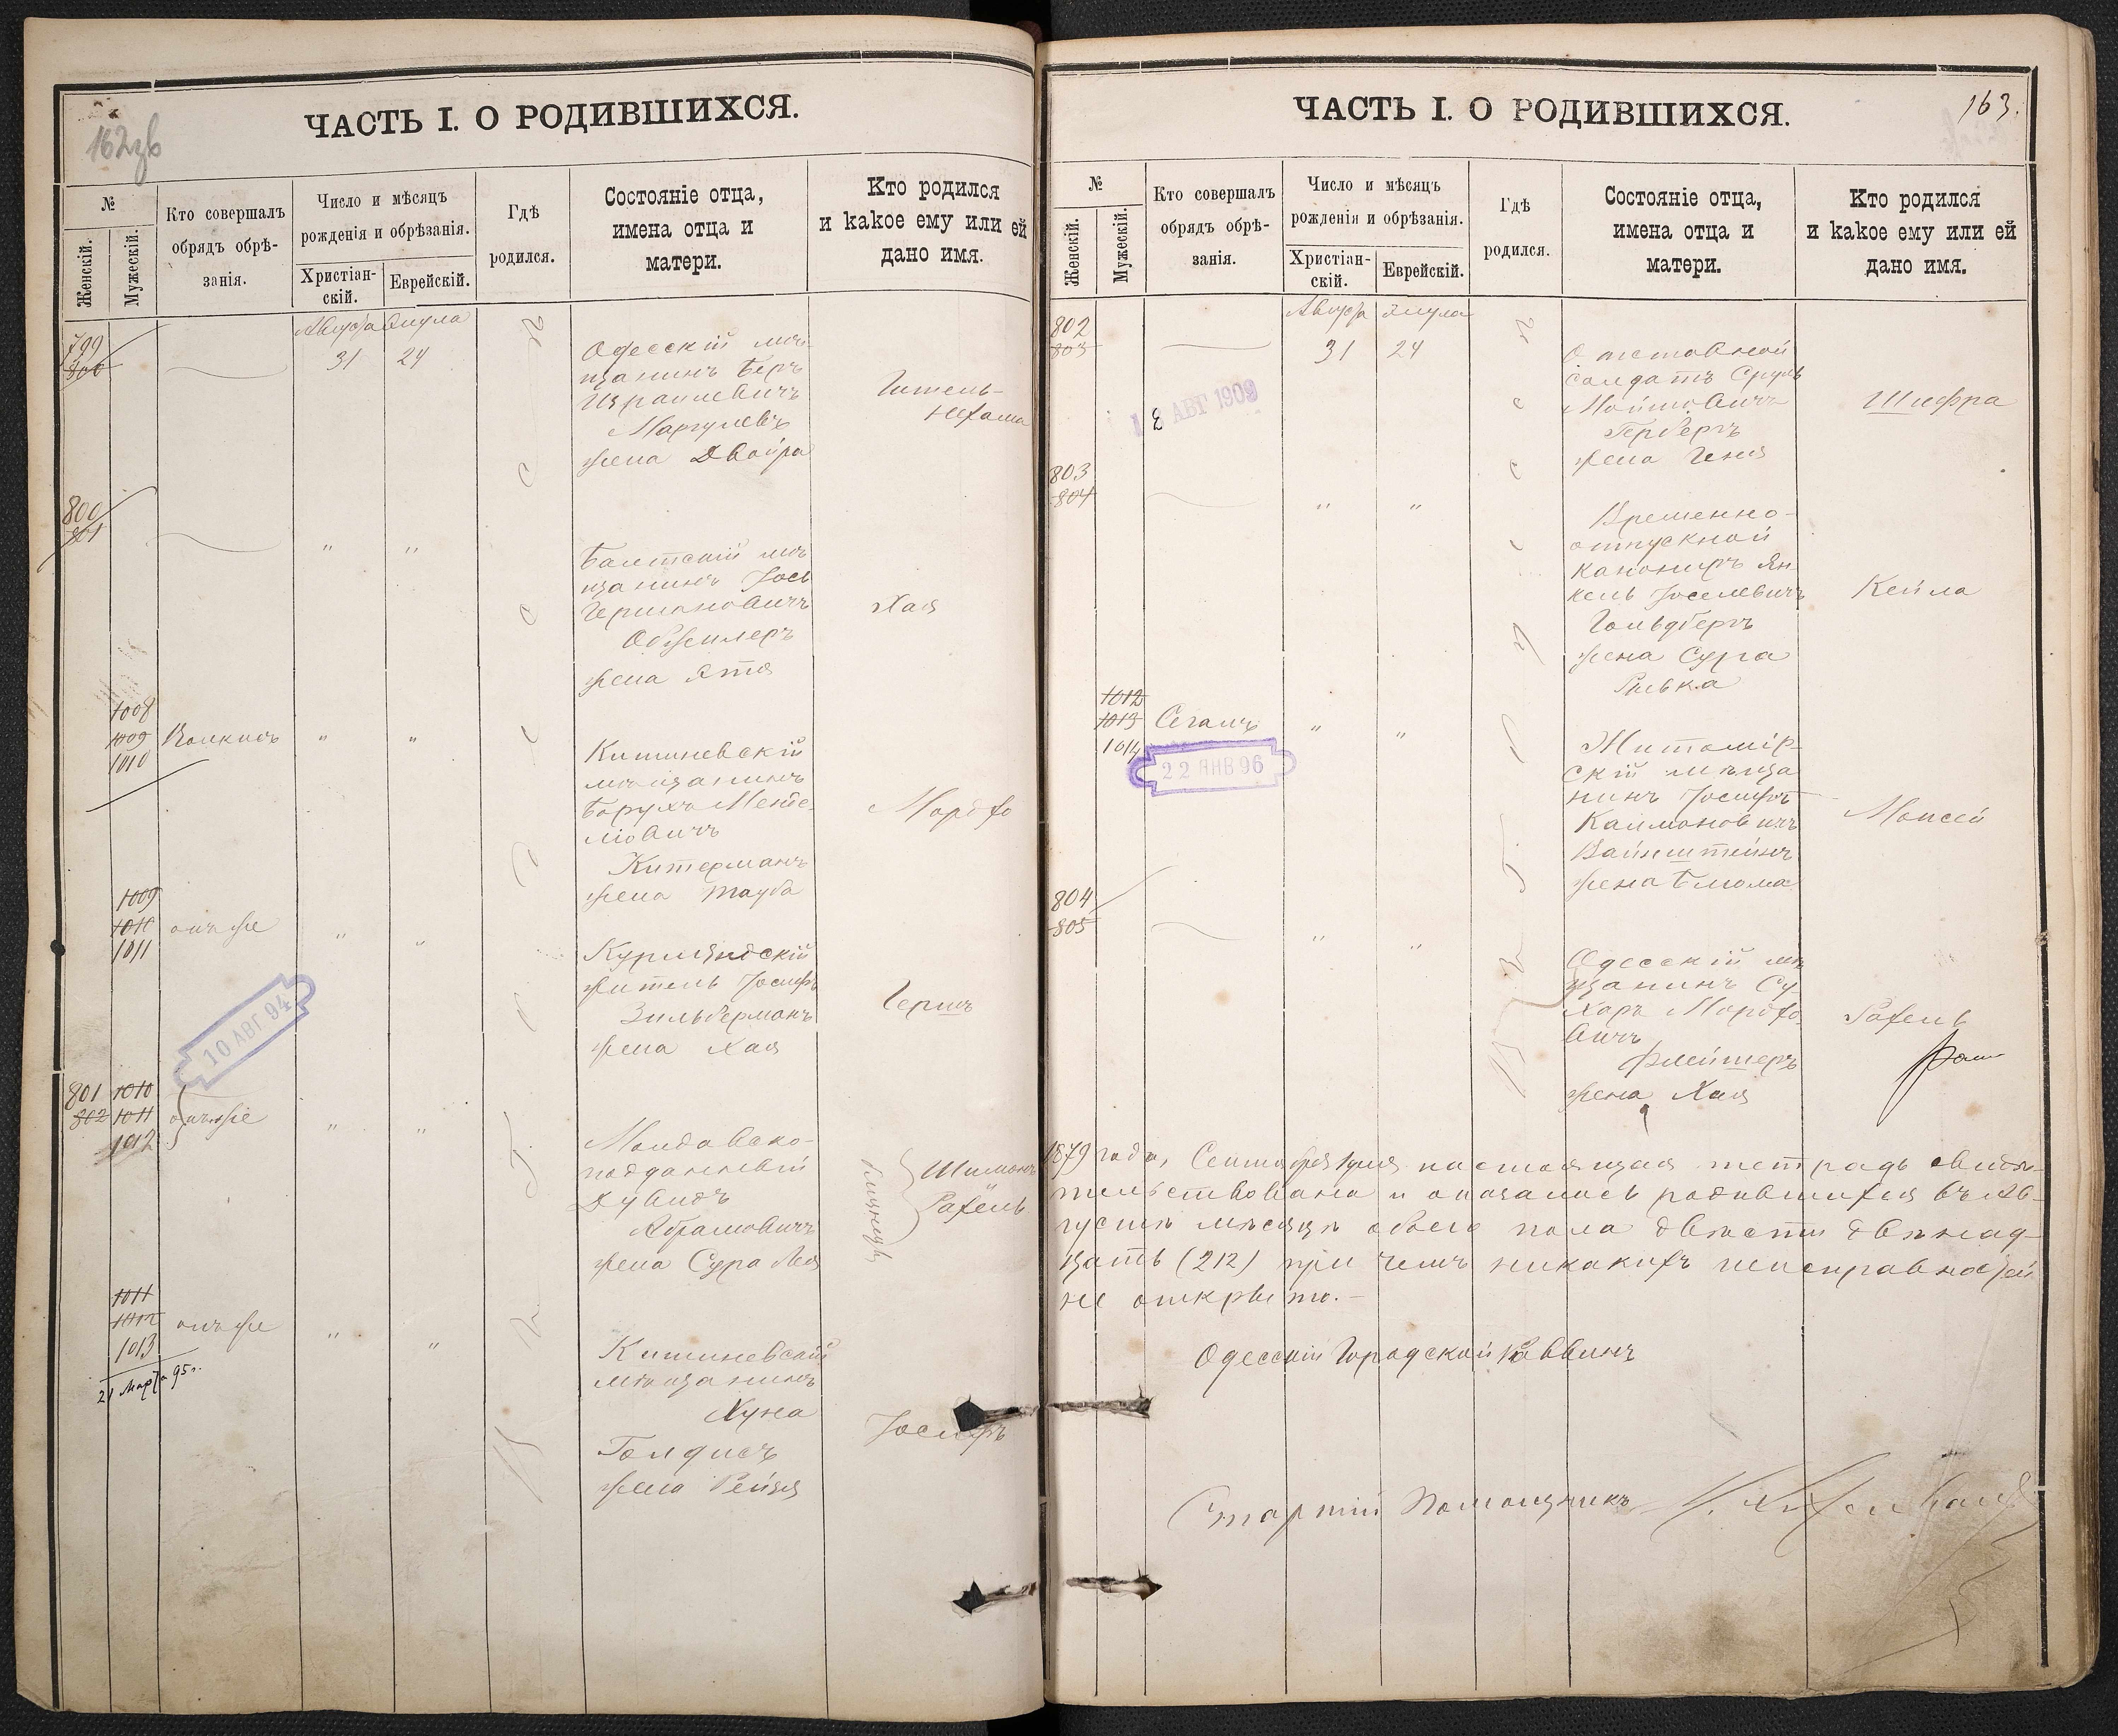 162 об
ЧАСТЬ I. О РОДИВШИХСЯ.
№
Женскій.
Мужескій.
Кто совершалъ
обрядъ обрѣ-
занія.
Число и мѣсяцъ
рожденія и обрѣзанія.
Христіан-
скій.
Еврейскій.
Гдѣ
родился.
Состояніе отца,
имена отца и
матери.
Кто родился
и какое ему или ей
дано имя.
Августа Элула
799
800
31 24
Одесскій мѣ-
щанинъ Беръ
Израилевичъ
Маргулевъ
жена Двойра
Гитель-
Нехама
800
801
" "
Балтскій мѣ
щанинъ Іось
Гершоновичъ
жена Этя
Хая
1008
1009
1010
Волкисъ
" "
Кишиневскій
мѣщанинъ
Борухъ Менде-
ліовичъ
Китерманъ
жена Тауба
Мордхо
1009
1010
1011
онъ же
" "
Курляндскій
житель Іосифъ
Зильберманъ
жена Хая
Гершъ
10 АВГ 94
801 1010
802 1011
1012
онъ же
" "
Молдавско-
подданный
Дувидъ
Абрамовичъ
жена Сура Лея
близнецы
Шимонъ
Рахель
1011
1012
1013
21 Марта 95 г.
онъ же
" "
Кишиневскій
мѣщанинъ
Хуна
Голдисъ
жена Рейзя
Іосифъ
163.
ЧАСТЬ I. О РОДИВШИХСЯ.
№
Женскій.
Мужескій.
Кто совершалъ
обрядъ обрѣ-
занія.
Число и мѣсяцъ
рожденія и обрѣзанія.
Христіан-
скій.
Еврейскій.
Гдѣ
родился.
Состояніе отца,
имена отца и
матери.
Кто родился
и какое ему или ей
дано имя.
Августа Элула
802
803
31 24
Отставной
солдатъ Сруль
Мойшовичъ
Герберъ
жена Геня
Шифра
АВГ 1909
803
804
" "
Временно-
отпускной
канониръ Ян-
кель Іоселевичъ
Гольдбергъ
жена Сура
Ривка
Кейла
1012
1013
1014
Сегалъ
" "
22 ЯНВ 96
Житомір-
скій мѣща
нинъ Іосифъ
Калмоновичъ
Вайнштейнъ
жена Блюма
Моисей
804
805
" "
Одесскій мѣ
щанинъ Су-
харъ Мордхо-
вичъ
Флейшеръ
жена Хая
Рахель
1879 года, Сентября 1 дня настоящая тетрадь свидѣ-
тельствована и оказалось родившихся въ Ав-
густѣ мѣсяцѣ обоего пола двѣсти двѣнад-
цать (212) при чемъ никакихъ неисправностей
не открыто.-
Одесскій Городской Раввинъ
Старшій Помощникъ